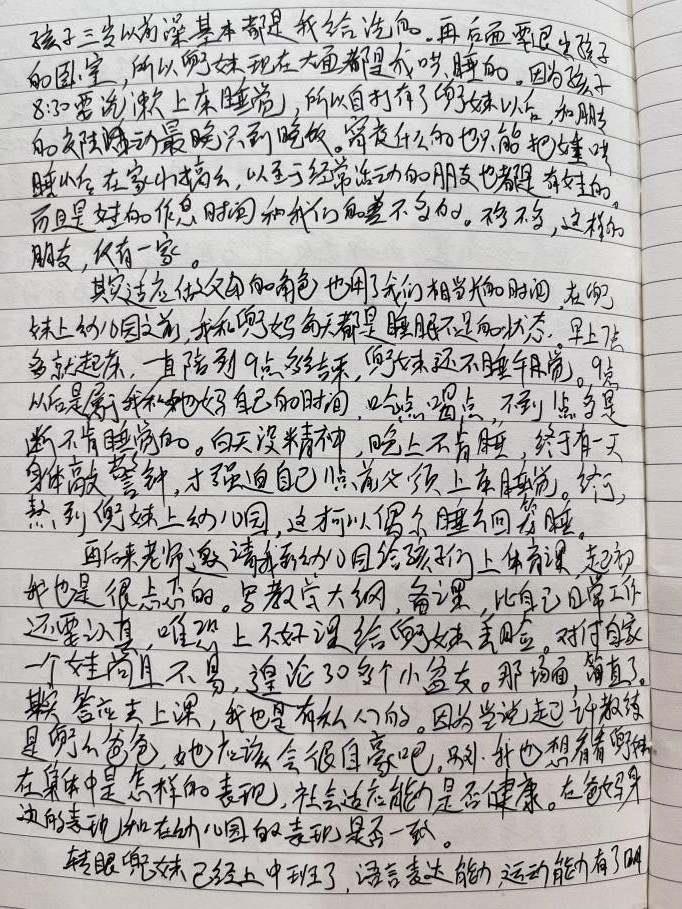 孩子三岁以前澡基本都是我给洗的。再后面要退出孩子
的卧室，所以兜妹现在大面都是我哄睡的。因为孩子
8:30要洗漱上床睡觉，所以自打有了兜妹以后，和朋友
的活动最晚只到晚饭。宵夜什么的也只能把娃哄
睡以后在家小搞么，以至于经常活动的朋友也都是有娃的。
而且是娃的作息时间和我们的差不多的。不多不多，这样的
朋友，仅有一家。
其实适应做父母的角色也用了我们相当长的时间，在兜
妹上幼儿园之前，我和兜妈每天都是睡眠不足的状态。早上7点
多就起床，一直陪到9点多结束，兜妹还不睡午觉。9点
以后是属于我和她妈自己的时间，吃点喝点，不到1点多是
断不肯睡觉的。白天没精神，晚上不肯睡，终于有一天
身体敲警钟，才强迫自己12点前必须上床睡觉。终于，
熬到兜妹上幼儿园，这才可以偶尔睡个回笼睡。
再后来老师邀请我到幼儿园给孩子们上体育课，起初
我也是很忐忑的。写教学大纲，备课，比自己日常工作
还要认真，唯恐上不好课给兜妹丢脸。对付自家
一个娃尚且不易，遑论30多个小盆友。那场面，简直了。
其实答应去上课，我也是有私心的。因为当说起许教练
是兜么爸爸，她应该会很自豪吧，另外我也想看看兜妹
在集体中是怎样的表现，社会适应能力是否健康。在爸妈身
边的表现和在幼儿园的表现是否一致。
转眼兜妹已经上中班了，语言表达能力，运动能力有了明